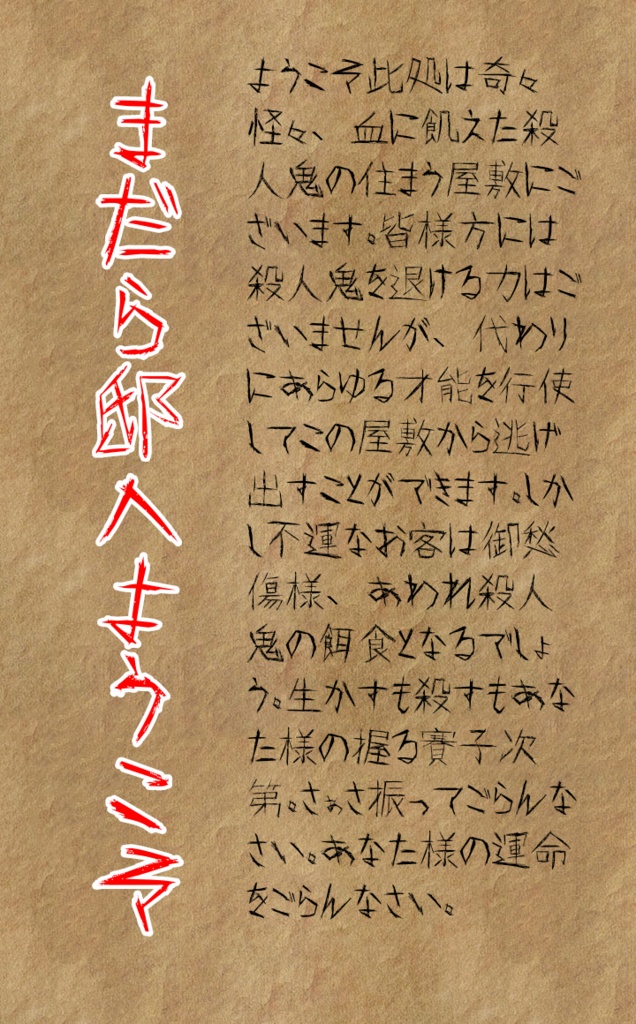 まだら邸へようこそ
ようこそ此処は奇々
怪々、血に飢えた殺
人鬼の住まう屋敷にご
ざいます。皆様方には
殺人鬼を退ける力はご
ざいませんが、代わり
にあらゆる才能を行使
してこの屋敷から逃げ
出すことができます。しか
し不運なお客は御愁
傷様、あわれ殺人
鬼の餌食となるでしょ
う。生かすも殺すもあな
た様の握る賽子次
第。さぁさ振ってごらんな
さい。あなた様の運命
をごらんなさい。